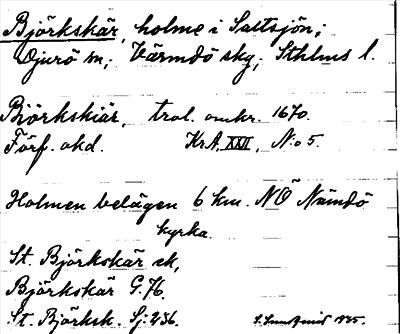 Björkskär, holme i Saltsjön;
Djurö sn; Värmdö skg; Sthlms l.
Biörkskiär, trol. omkr. 1670.
Förf. okd. KrA, XXII, N:o 5.
Holmen belägen 6 km. NÖ Nämdö
kyrka.
St. Björkskär ek,
Björkskär G. 76.
St. Björksk. Sj: 236.
1925.